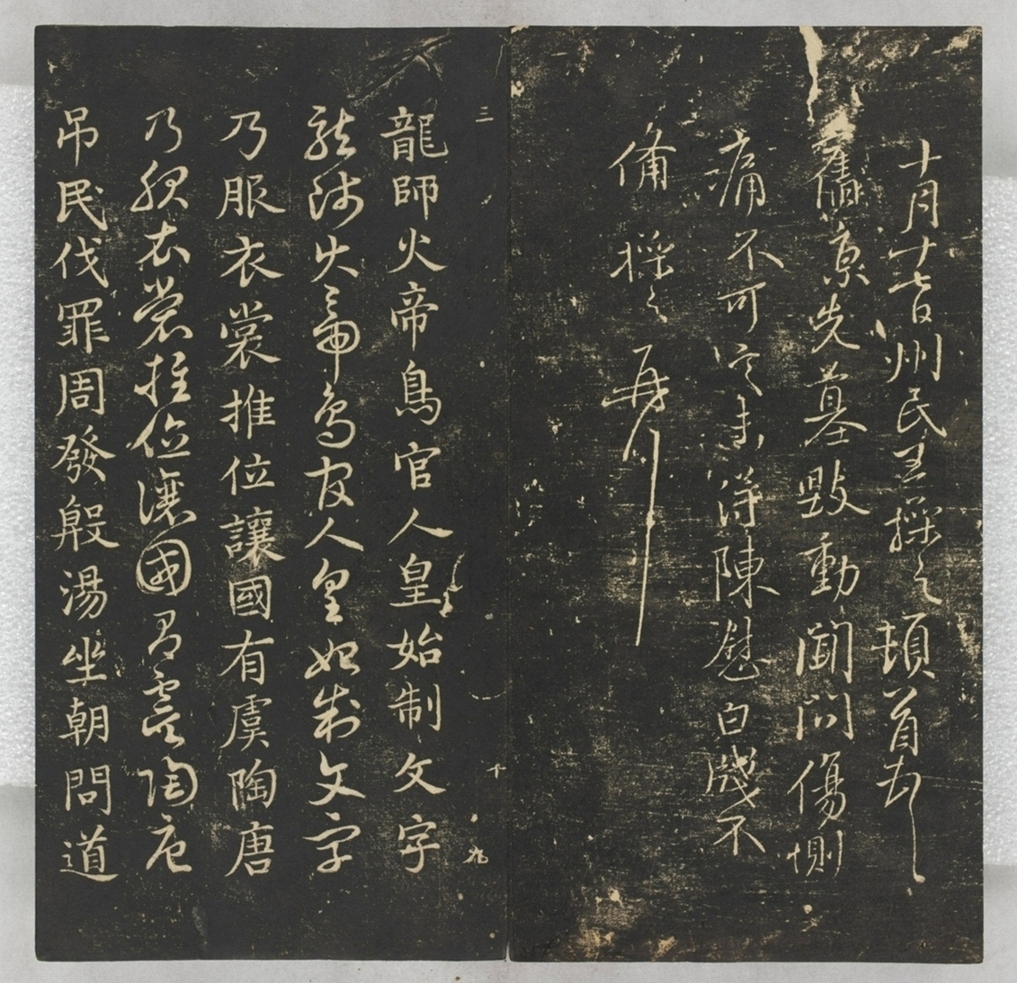 十月十七日州民王操之頓首頓首
舊京先墓毀動聞問傷惻
痛不可言未得陳慰白牋不
備操之再拜
三
千
九
龍師火帝鳥官人皇始制文字
龍師火帝鳥官人皇始制文字
乃服衣裳推位讓國有虞陶唐
乃服衣裳推位讓國有虞陶唐
吊民伐罪周發殷湯坐朝問道